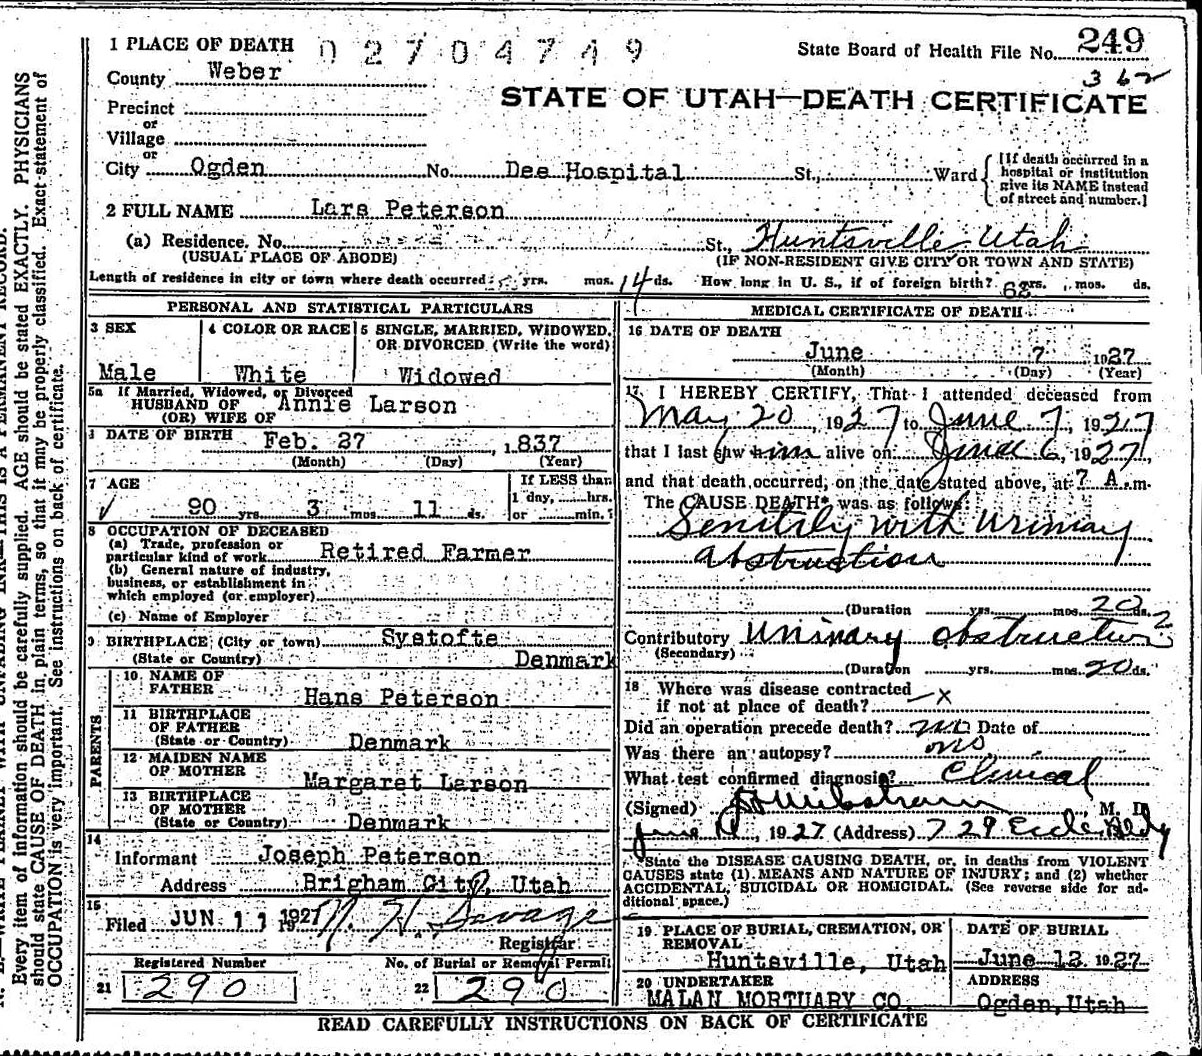 1 PLACE OF DEATH 02704749 State Board of Health File No. 249
County Weber 362
STATE OF UTAH—DEATH CERTIFICATE
Precinct
or
Village
or
City Ogden No. Dee Hospital St., Ward [If death occurred in a hospital or institution give its NAME instead of street and number.]
2 FULL NAME Lars Peterson
(a) Residence. No. St., Huntsville Utah
(USUAL PLACE OF ABODE) (IF NON-RESIDENT GIVE CITY OR TOWN AND STATE)
Length of residence in city or town where death occurred yrs. mos. 14 ds. How long in U. S., if of foreign birth? 62 yrs. mos. ds.
PERSONAL AND STATISTICAL PARTICULARS
3 SEX 4 COLOR OR RACE 5 SINGLE, MARRIED, WIDOWED, OR DIVORCED (Write the word)
Male White Widowed
5a If Married, Widowed, or Divorced
HUSBAND OF Annie Larson
(OR) WIFE OF
DATE OF BIRTH Feb. 27, 1837
(Month) (Day) (Year)
7 AGE If LESS than
1 day, hrs.
90 yrs. 3 mos. 11 ds. or min.
8 OCCUPATION OF DECEASED
(a) Trade, profession or
particular kind of work Retired Farmer
(b) General nature of industry,
business, or establishment in
which employed (or employer)
(c) Name of Employer
9 BIRTHPLACE (City or town) Systofte
(State or Country) Denmark
PARENTS
10 NAME OF
FATHER Hans Peterson
11 BIRTHPLACE
OF FATHER
(State or Country) Denmark
12 MAIDEN NAME
OF MOTHER Margaret Larson
13 BIRTHPLACE
OF MOTHER
(State or Country) Denmark
14
Informant Joseph Peterson
Address Brigham City, Utah
15
Filed JUN 11 1927 Savage
Registrar
Registered Number No. of Burial or Removal Permit
21 290 22 290
MEDICAL CERTIFICATE OF DEATH
16 DATE OF DEATH
June 7 1927
(Month) (Day) (Year)
17 I HEREBY CERTIFY, That I attended deceased from
May 20, 1927 to June 7, 1927
that I last saw him alive on June 6, 1927,
and that death occurred, on the date stated above, at 7 A.m.
The CAUSE DEATH* was as follows:
Senility with Urinary
obstruction
(Duration yrs. mos. 20 ds.
Contributory Urinary obstruction
(Secondary)
(Duration yrs. mos. 20 ds.
18 Where was disease contracted
if not at place of death? x
Did an operation precede death? no Date of
Was there an autopsy? no
What test confirmed diagnosis? Clinical
(Signed) M. D.
June, 1927 (Address) 729 Eccles Bldg
*State the DISEASE CAUSING DEATH, or, in deaths from VIOLENT
CAUSES state (1) MEANS AND NATURE OF INJURY; and (2) whether
ACCIDENTAL, SUICIDAL OR HOMICIDAL. (See reverse side for ad-
ditional space.)
19 PLACE OF BURIAL, CREMATION, OR DATE OF BURIAL
REMOVAL
Huntsville, Utah June 12 1927
20 UNDERTAKER ADDRESS
MALAN MORTUARY CO. Ogden, Utah
READ CAREFULLY INSTRUCTIONS ON BACK OF CERTIFICATE
Every item of information should be carefully supplied. AGE should be stated EXACTLY. PHYSICIANS
should state CAUSE OF DEATH in plain terms, so that it may be properly classified. Exact statement of
OCCUPATION is very important. See instructions on back of certificate.